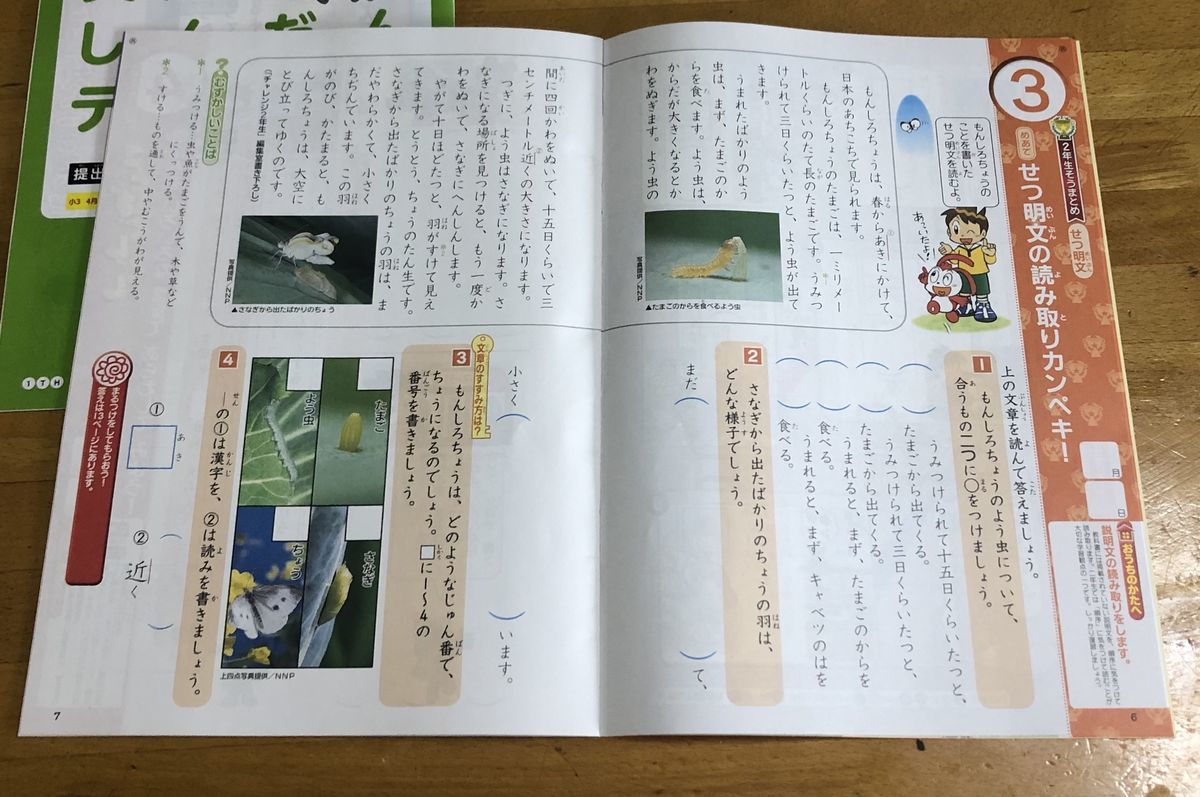 3
2年生そうまとめ
せつ明文
めあて
せつ明文の読み取りカンペキ！
月
日
おうちのかたへ
説明文の読み取りをします。
もんしろちょうの
ことを書いた
せつ明文を読むよ。
あ、いたよ！
もんしろちょうは、春からあきにかけて、
日本のあちこちで見られます。
もんしろちょうのたまごは、一ミリメー
トルくらいのたて長のたまごです。うみつ
けられて三日くらいたつと、よう虫が出て
きます。
うまれたばかりのよう
虫は、まず、たまごのか
らを食べます。よう虫は、
からだが大きくなるとか
わをぬぎます。よう虫の
▲たまごのからを食べるよう虫
写真提供／NNP
間に四回かわをぬいて、十五日くらいで三
センチメートル近くの大きさになります。
つぎに、よう虫はさなぎになります。さ
なぎになる場所を見つけると、もう一度か
わをぬいで、さなぎにへんしんします。
やがて十日ほどたつと、羽がすけて見え
てきます。とうとう、ちょうのたん生です。
さなぎから出たばかりのちょうの羽は、ま
だやわらかくて、小さく
ちぢんでいます。この羽
がのび、かたまると、も
んしろちょうは、大空に
とび立ってゆくのです。
（「チャレンジ2年生」編集室書き下ろし）
▲さなぎから出たばかりのちょう
写真提供／NNP
？むずかしいことば
＊1 うみつける…虫や魚がたまごをうんで、木や草など
にくっつける。
＊2 すける…ものを通して、中やむこうがわが見える。
上の文章を読んで答えましょう。
1 もんしろちょうのよう虫について、
合うもの二つに○をつけましょう。
（ ）うみつけられて十五日くらいたつと、
たまごから出てくる。
（ ）うみつけられて三日くらいたつと、
たまごから出てくる。
（ ）うまれると、まず、たまごのからを
食べる。
（ ）うまれると、まず、キャベツのはを
食べる。
2 さなぎから出たばかりのちょうの羽は、
どんな様子でしょう。
まだ（ ）て、
小さく（ ）います。
文章のすすみ方は？
3 もんしろちょうは、どのようなじゅん番で、
ちょうになるのでしょう。□に1〜4の
番号を書きましょう。
たまご
さなぎ
よう虫
ちょう
上四点写真提供／NNP
4 ―の①は漢字を、②は読みを書きましょう。
①
あき
②
（ ）
近く
まるつけをしてもらおう！
答えは13ページにあります。
6
7
提出
小3 4月
1TH